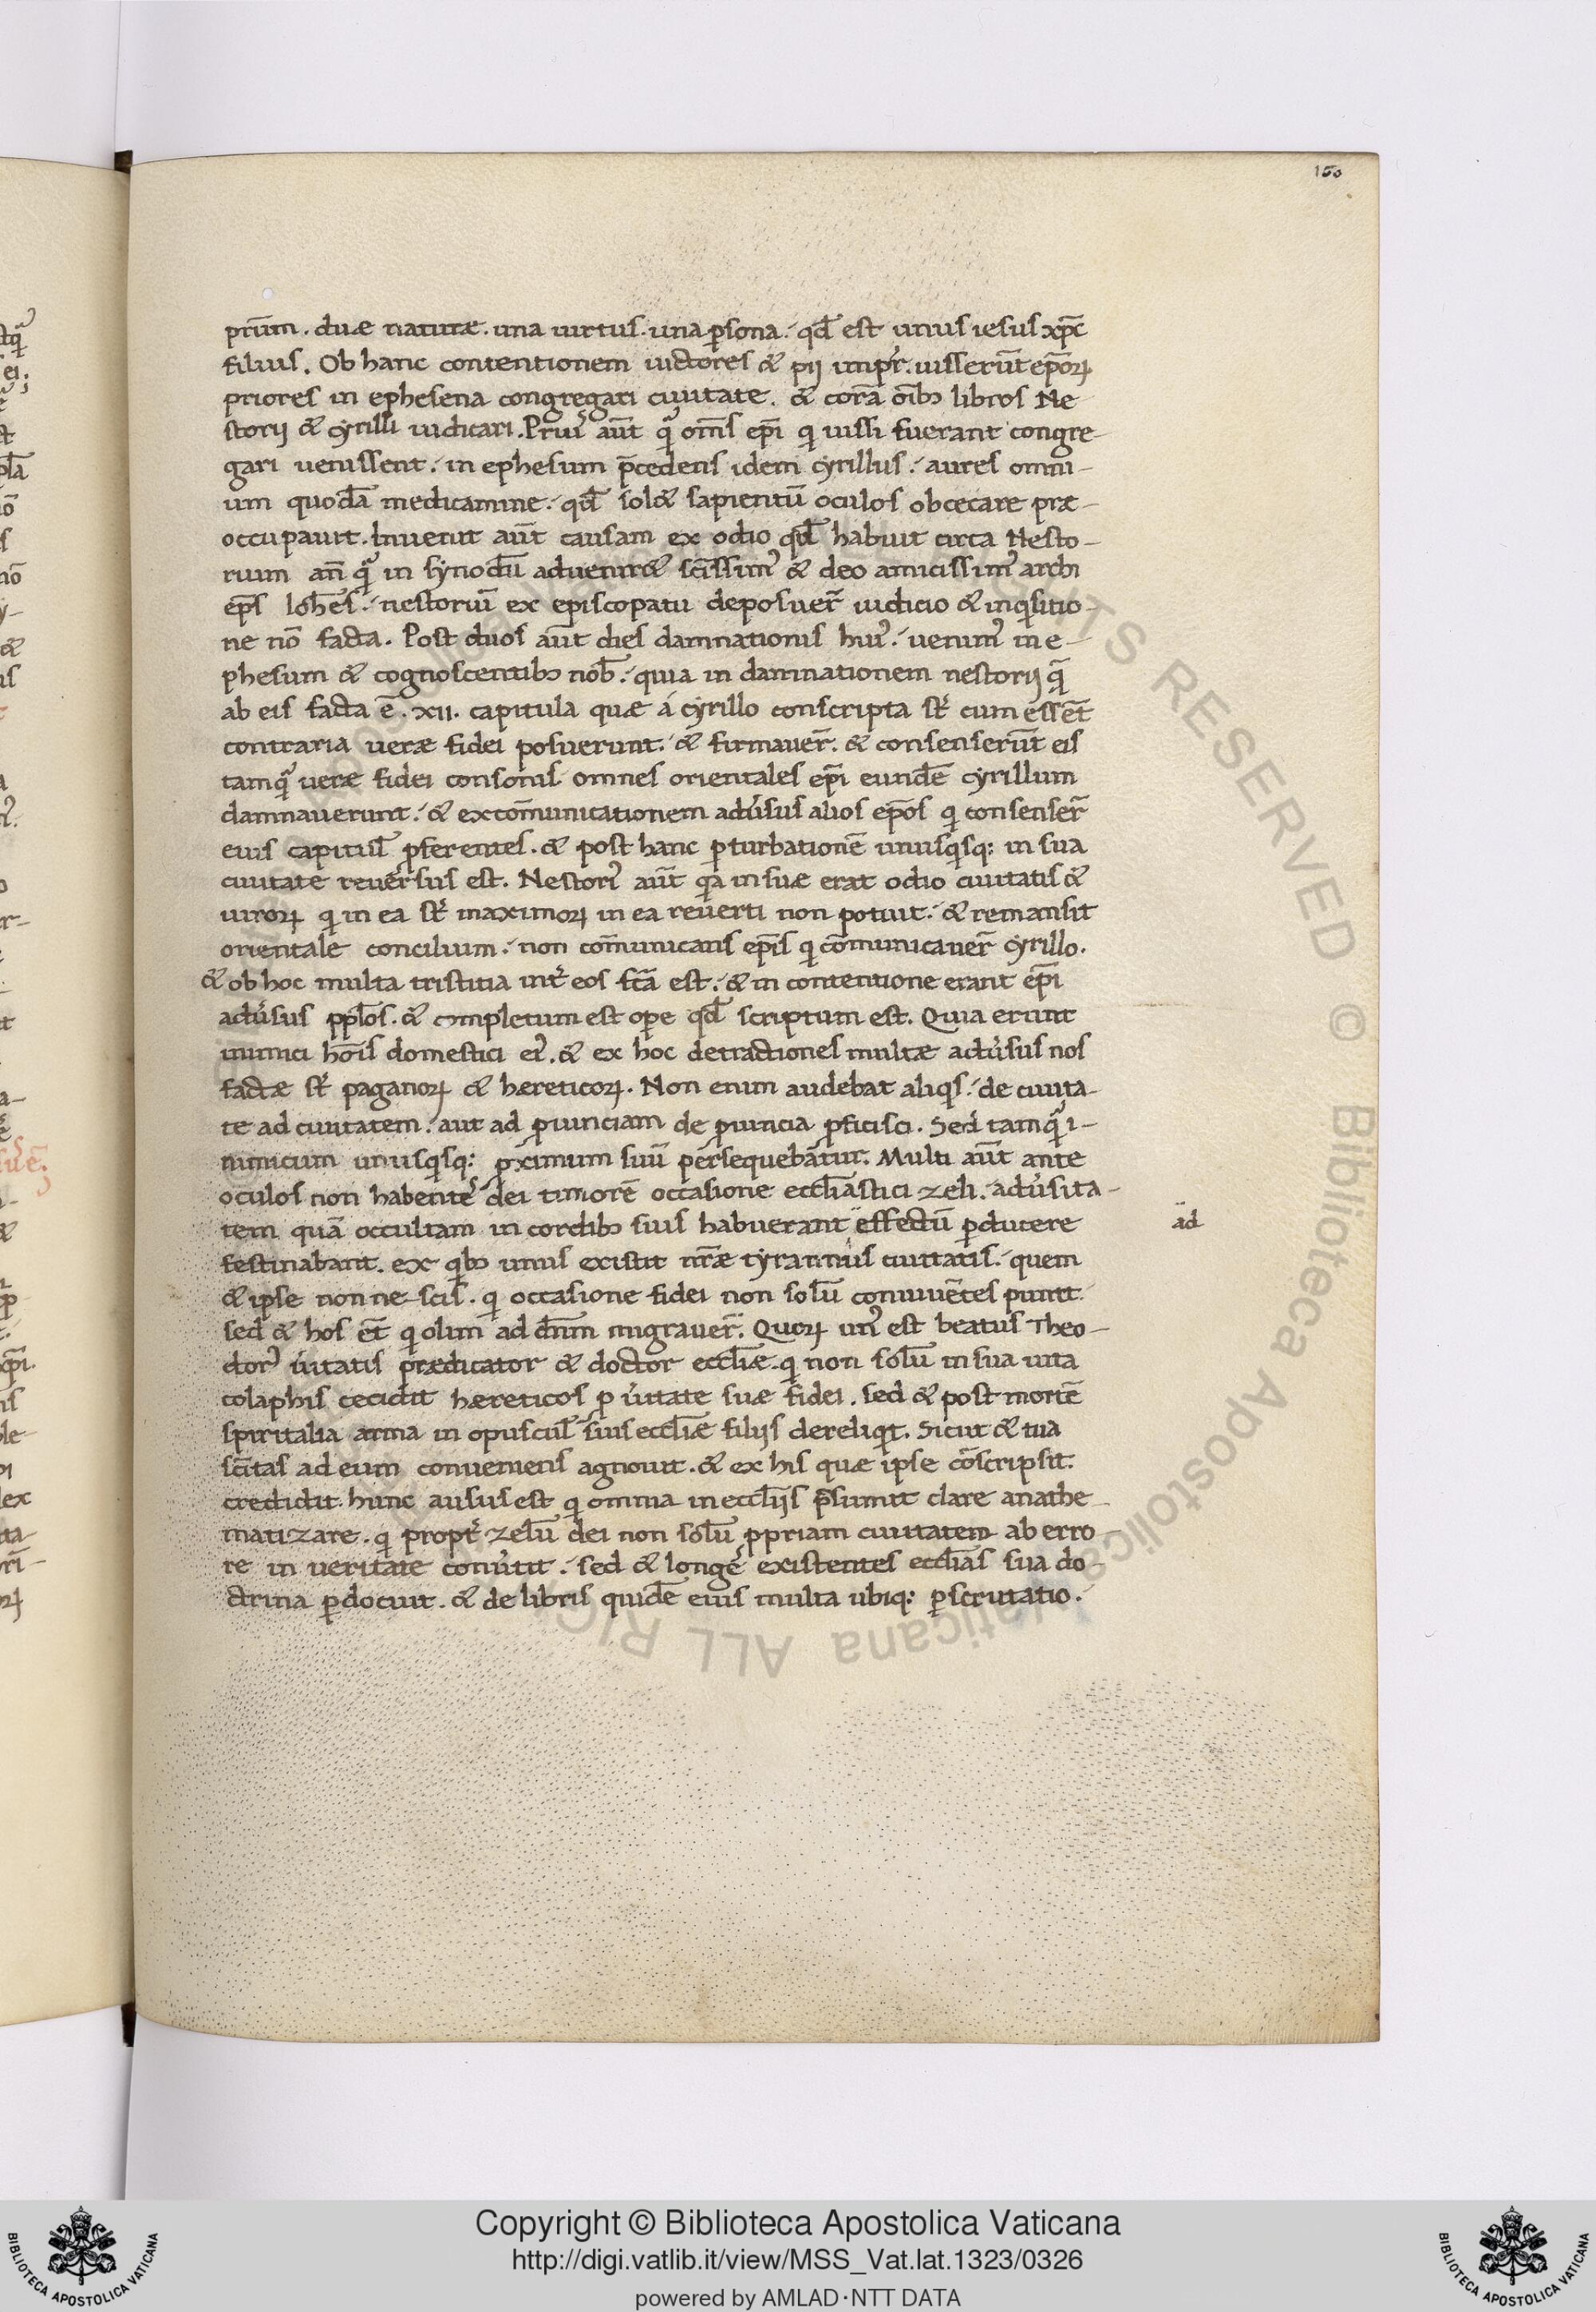 150
prim̅. duæ naturæ. una uirtus. una ꝑsona. qđ est unus iesus xp̅c
filius. Ob hanc contentionem uictores & pii imp̅r. iusserūt ep̅oꝝ
priores in ephesena congregari ciuitate. & corā oīb; libros Ne
storij & cyrilli iudicari. Priꝰ aūt quā om̅s ep̅i qi iussi fuerant congre-
gari uenissent. in ephesum p̅cedens idem cyrillus. aures omni-
um quodā medicamine. qđ sol& sapientū oculos obcecare præ-
occupauit. Inuenit aūt causam ex odio qđ habuit circa Nesto-
rium an̅ quā in synodū adueniret sc̅issimꝰ & deo amicissimꝰ archi
ep̅s Ioh̅es. nestoriū ex episcopatu deposuer̅ iudicio & inqisitio-
ne nō facta. Post duos aūt dies damnationis huiꝰ. uenimꝰ in e-
phesum & cognoscentib; nob̅. quia in damnationem nestorij quę
ab eis facta ē. xii. capitula quæ á cyrillo conscripta st̅ cum essēt
contraria ueræ fidei posuerunt. & firmauer̅. & consenserūt eis
tamquā ueræ fidei consonis omnes orientales ep̅i eundē cyrillum
damnauerunt. & excōmunicationem adu̓sus alios ep̅os qi consenser̅
eius capitul̅ ꝓferentes. & post hanc ꝑturbationē unusqisq; in sua
ciuitate reuersus est. Nestoriꝰ aūt qia in suæ erat odio ciuitatis &
uiroꝝ qi in ea st̅ maximoꝝ in ea reuerti non potuit. & remansit
orientale concilium. non cōmunicans ep̅is qi cōmunicauer̅ cyrillo.
& ob hoc multa tristitia int̓ eos fc̅a est. & in contentione erant ep̅i
adu̓sus pp̅los. & completum est ope qđ scriptum est. Quia erunt
inimici ho̅is domestici eiꝰ. & ex hoc detractiones multæ adu̓sus nos
factæ st̅ paganoꝝ & hæreticoꝝ. Non enim audebat aliqis. de ciuita-
te ad ciuitatem. aut ad ꝓuinciam de ꝓuincia ꝓficisci. Sed tamquā i-
nimicum unusqisq; ꝓximum suū persequebatur. Multi aūt ante
oculos non habentes dei timorē occasione eccl̅iastici zeli. adu̓sita-
tem quā occultam in cordib; suis habuerant effectū ꝑducere
ad
festinabant. ex qib; unus existit nr̅æ tyrannus ciuitatis. quem
& ipse non nescis. qi occasione fidei non solū conuiuētes punit.
sed & hos ēt qi olim ad dn̅m migrauer̅. Quoꝝ unꝰ est beatus Theo-
dorꝰ u̓itatis prædicator & doctor eccl̅iæ. qi non solū in sua uita
colaphis cecidit hæreticos ꝑ u̓itate suæ fidei. sed & post mortē
spiritalia arma in opuscul̅ suis eccl̅iæ filijs dereliqit. Sicut & tua
sc̅itas ad eum conueniens agnouit. & ex his quæ ipse cōscripsit.
credidit. hunc ausus est qi omnia in eccl̅ijs p̅sumit clare anathe-
matizare. qi propt̓ zelū dei non solū ꝓpriam ciuitatem ab erro-
re in ueritate conu̓tit. sed & longe existentes eccl̅ias sua do-
ctrina ꝑdocuit. & de libris quidē eius multa ubiq; ꝑscrutatio.
Copyright © Biblioteca Apostolica Vaticana
http://digi.vatlib.it/view/MSS_Vat.lat.1323/0326
powered by AMLAD·NTT DATA